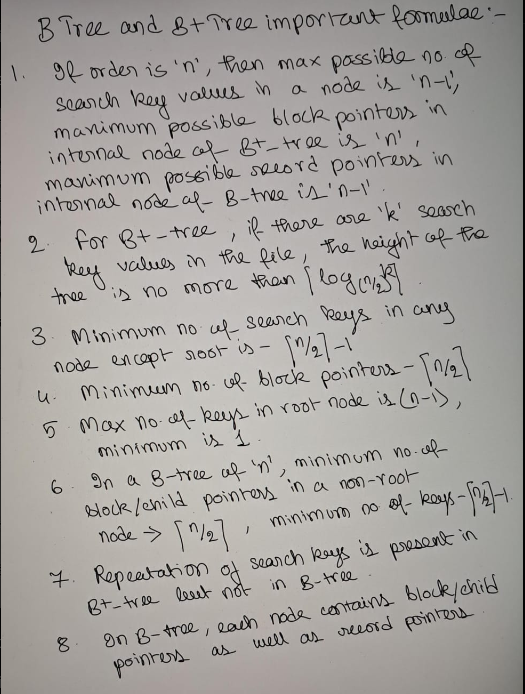 B Tree and B+Tree important formulae:-
1. If order is 'n', then max possible no. of
search key values in a node is 'n-1',
maximum possible block pointers in
internal node of B+-tree is 'n',
maximum possible record pointers in
internal node of B-tree is 'n-1'.
2. For B+-tree, if there are 'k' search
key values in the file, the height of the
tree is no more than ⌈log(n/2)k⌉.
3. Minimum no. of search keys in any
node except root is - ⌈n/2⌉-1
4. Minimum no. of block pointers - ⌈n/2⌉
5 Max no. of keys in root node is (n-1),
minimum is 1.
6. In a B-tree of 'n', minimum no. of
block/child pointers in a non-root
node → ⌈n/2⌉, minimum no of keys-⌈n/2⌉-1.
7. Repeatation of search keys is present in
B+-tree but not in B-tree.
8. In B-tree, each node contains block/child
pointers as well as record pointers.